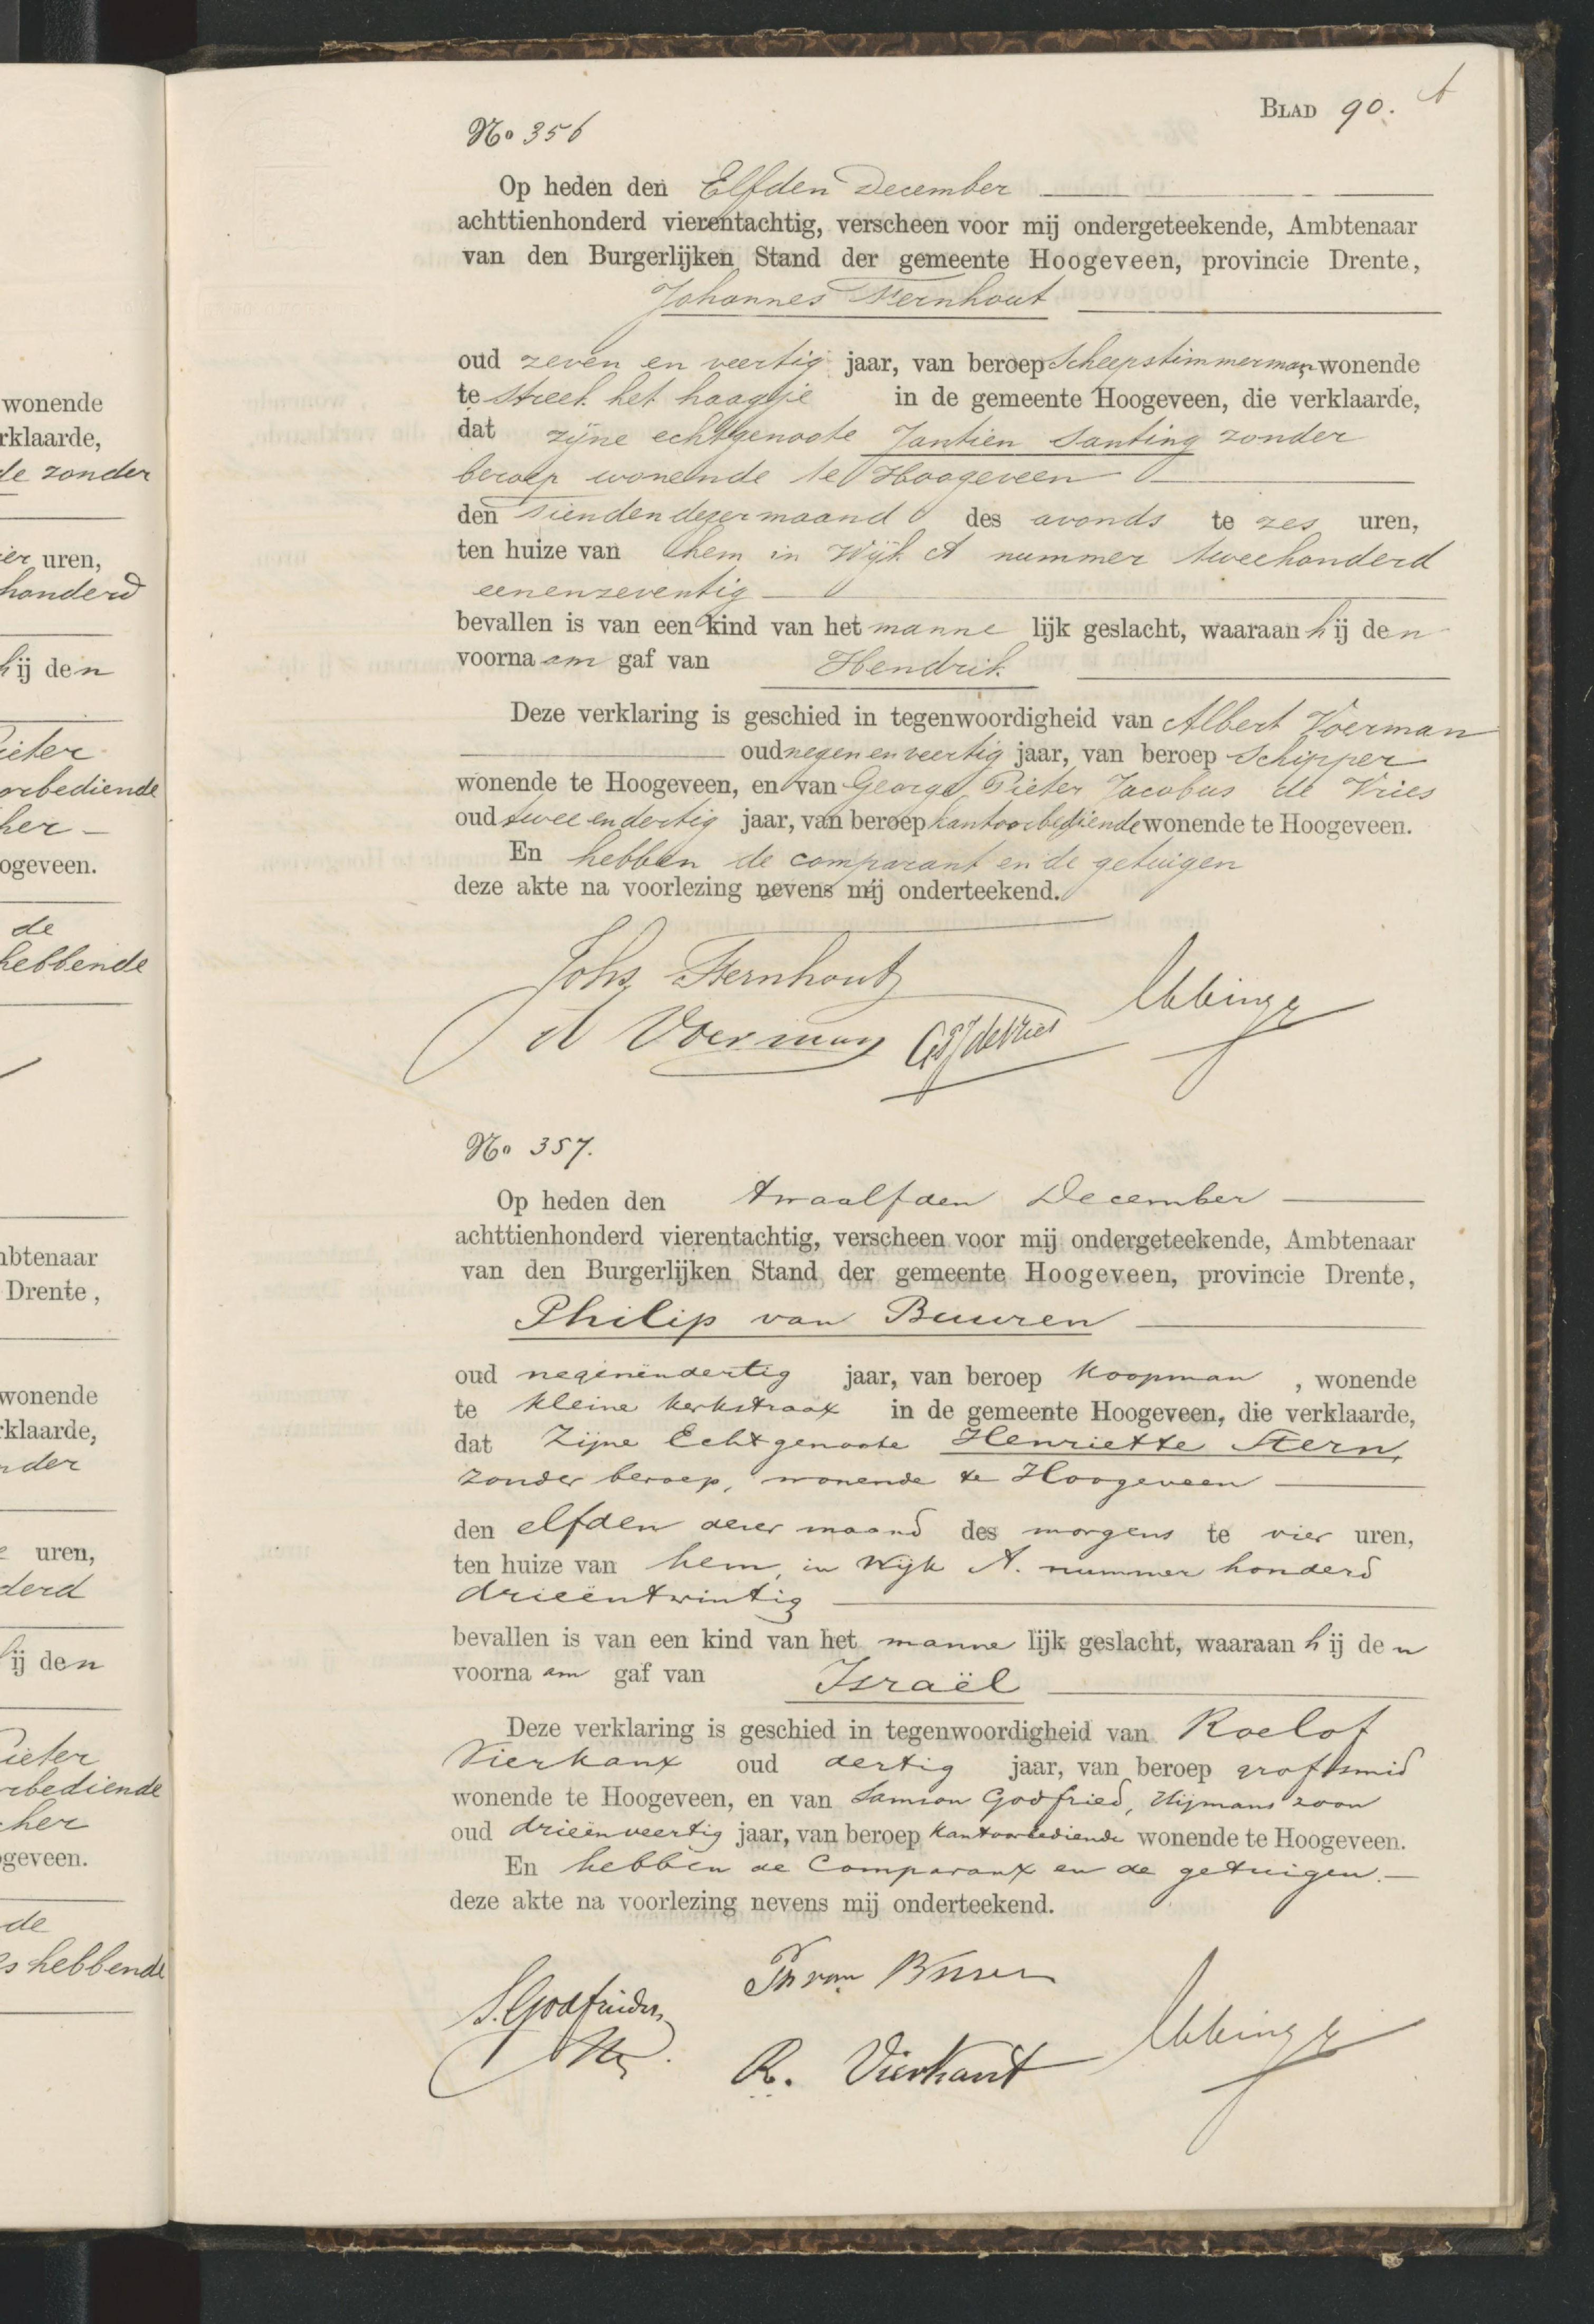 wonende
rklaarde,
de zonder
ier uren,
honderd
hij den
Pieter
orbediende
her
ogeveen.
de
hebbende
mbtenaar
Drente,
wonende
rklaarde,
nder
uren,
derd
hij den
Pieter
rbediende
cher
ogeveen.
de
es hebbende
BLAD 90.
No 356
Op heden den Elfden December
achttienhonderd vierentachtig, verscheen voor mij ondergeteekende, Ambtenaar
van den Burgerlijken Stand der gemeente Hoogeveen, provincie Drente,
Johannes Fernhout
oud zeven en veertig jaar, van beroep Scheepstimmerman, wonende
te streek het haagje in de gemeente Hoogeveen, die verklaarde,
dat zijne echtgenoote Jantien Santing zonder
beroep wonende te Hoogeveen
den Tienden dezer maand des avonds te zes uren,
ten huize van hem in Wijk A nummer tweehonderd
eenenzeventig
bevallen is van een kind van het manne lijk geslacht, waaraan hij den
voorna am gaf van Hendrik
Deze verklaring is geschied in tegenwoordigheid van Albert Voerman
oud negen en veertig jaar, van beroep Schipper
wonende te Hoogeveen, en van George Pieter Jacobus de Vries
oud twee en dertig jaar, van beroep kantoorbediende wonende te Hoogeveen.
En hebben de comparant en de getuigen
deze akte na voorlezing nevens mij onderteekend.
Johs Fernhout
A Voerman GPJ de Vries
No 357.
Op heden den twaalfden December
achttienhonderd vierentachtig, verscheen voor mij ondergeteekende, Ambtenaar
van den Burgerlijken Stand der gemeente Hoogeveen, provincie Drente,
Philip van Buuren
oud negenendertig jaar, van beroep Koopman, wonende
te Kleine Kerkstraat in de gemeente Hoogeveen, die verklaarde,
dat Zijne Echtgenoote Henriette Stern,
zonder beroep, wonende te Hoogeveen
den elfden dezer maand des morgens te vier uren,
ten huize van hem, in Wijk A. nummer honderd
drieëntwintig
bevallen is van een kind van het manne lijk geslacht, waaraan hij den
voorna am gaf van Israël
Deze verklaring is geschied in tegenwoordigheid van Roelof
Vierkant oud dertig jaar, van beroep grofsmid
wonende te Hoogeveen, en van Samson Godfried, Hijmans zoon
oud drieënveertig jaar, van beroep Kantoorbediende wonende te Hoogeveen.
En hebben de Comparant en de getuigen.
deze akte na voorlezing nevens mij onderteekend.
Ph van Buuren
R. Vierkant